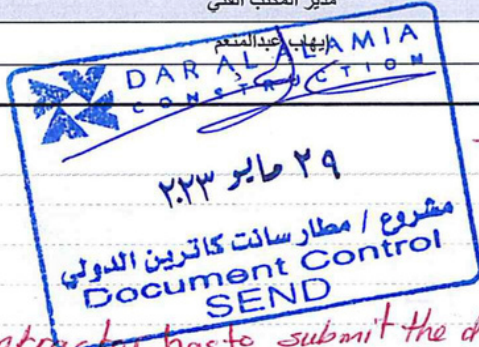 مدير المكتب الفني
إيهاب عبدالمنعم
DAR AL ALAMIA
CONSTRUCTION
٢٩ مايو ٢٠٢٣
مشروع / مطار سانت كاترين الدولي
Document Control
SEND
has to submit the